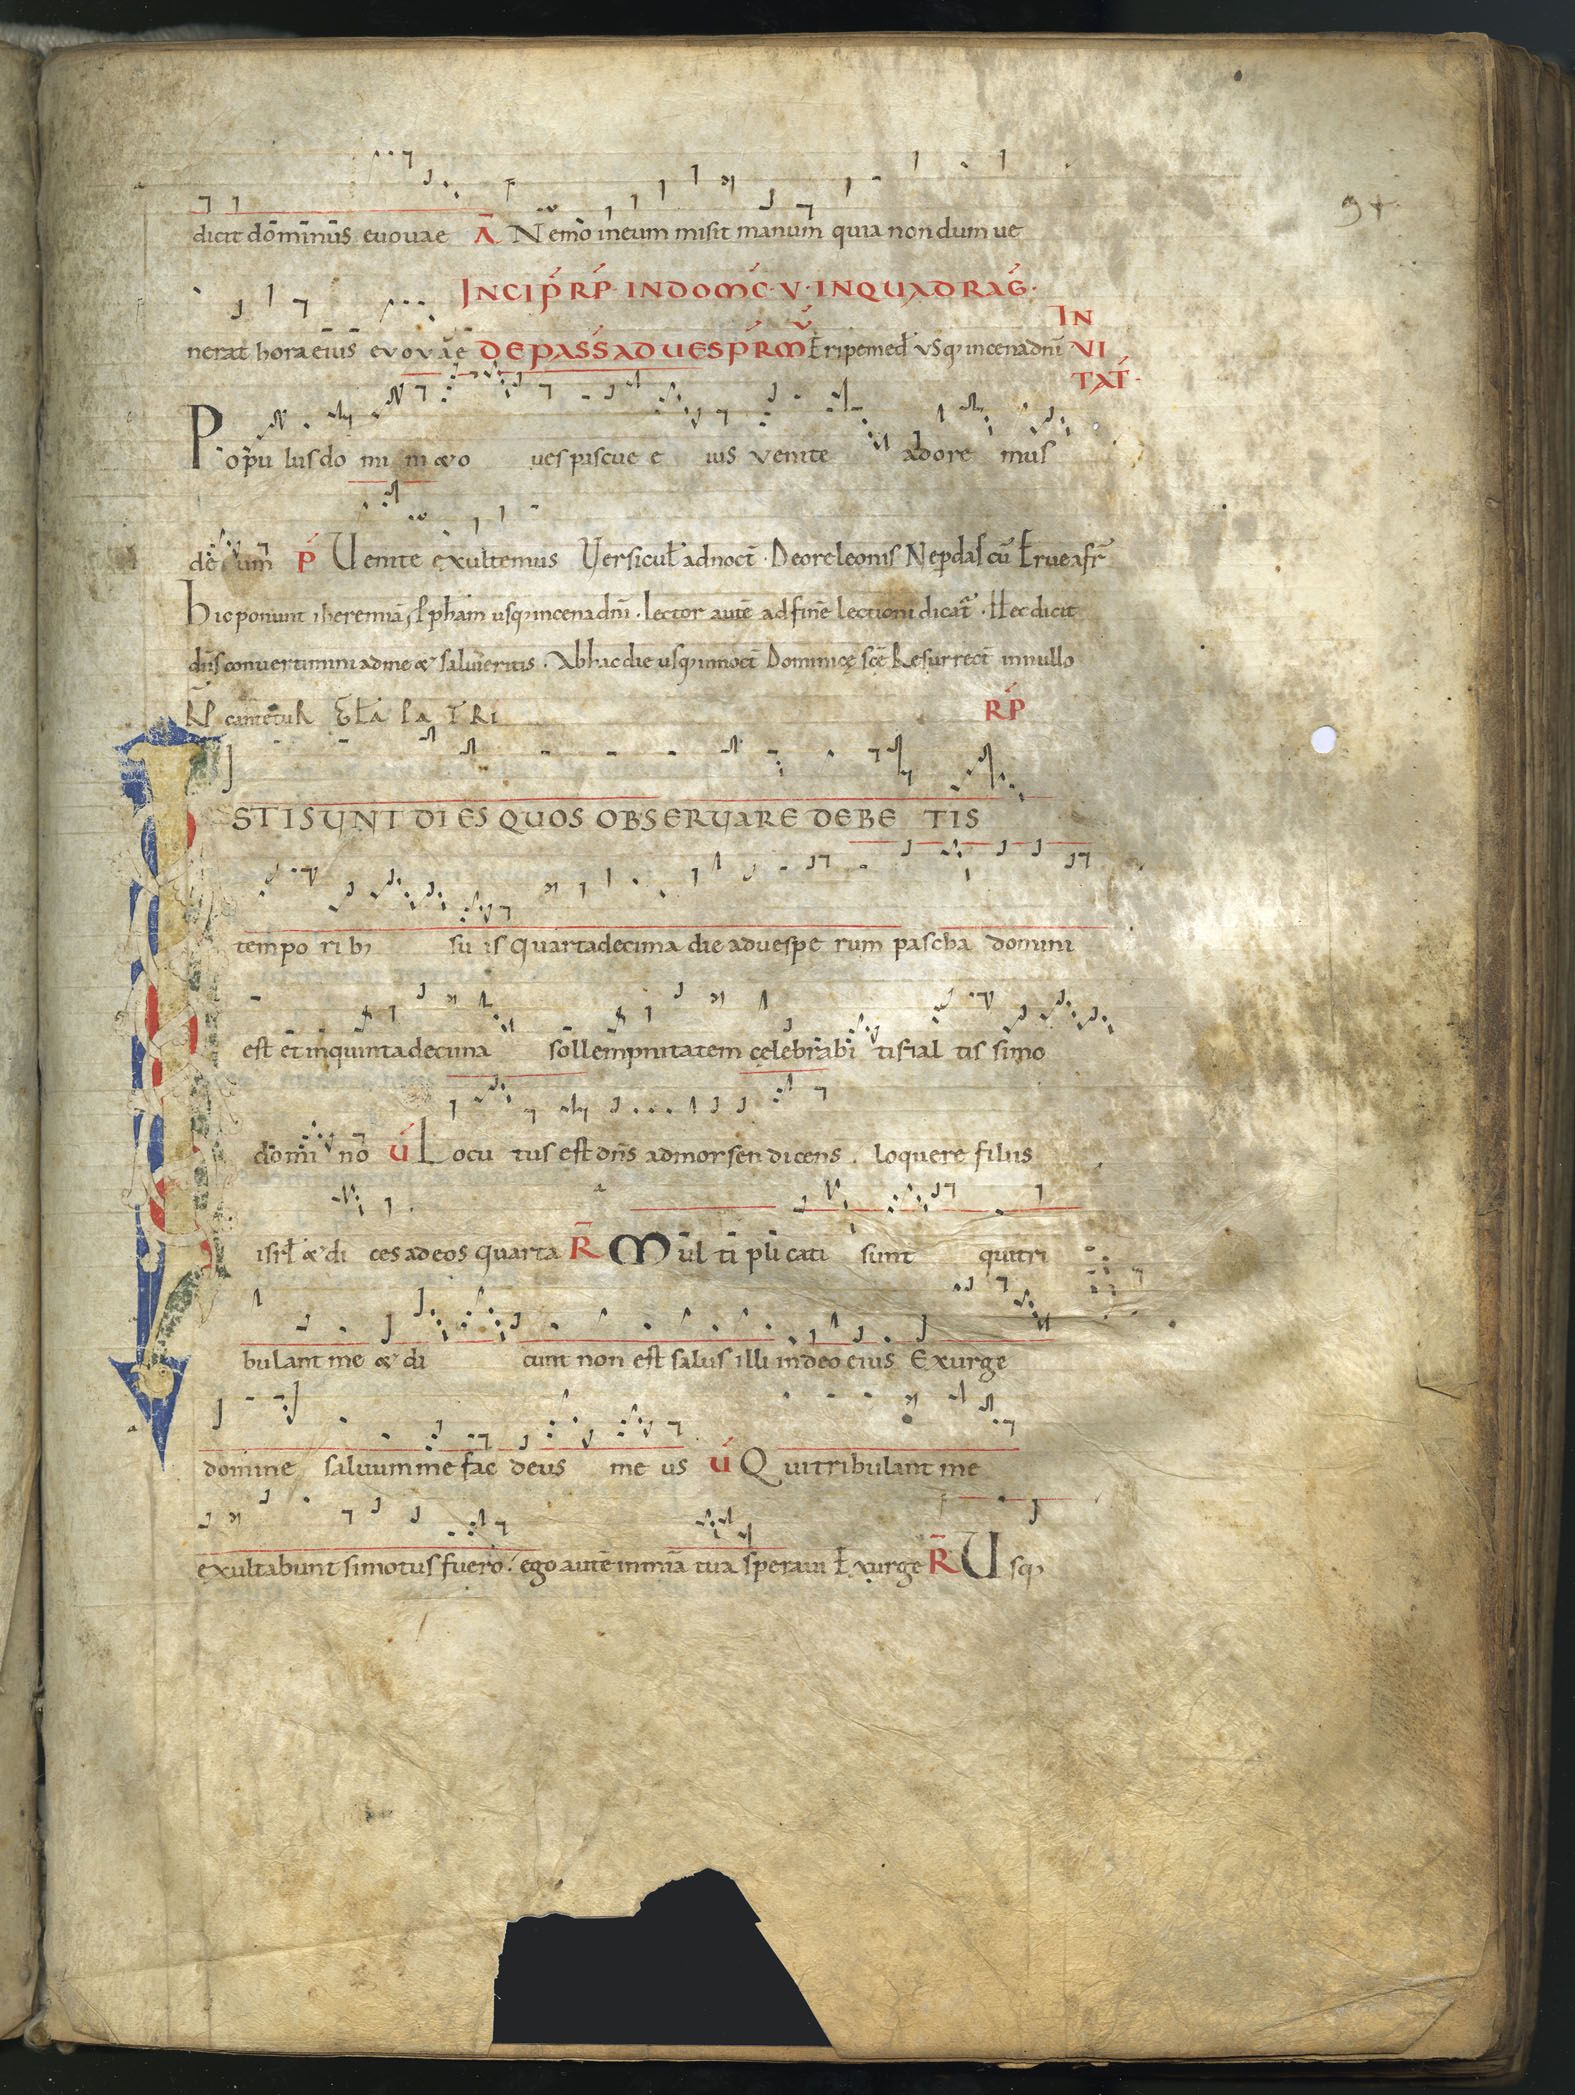 94
dicit dōmīnūs euouae Ā Nemō ineum misit manum quia non dum ue
INCIṔ RṔ INDOMC̄ · V · INQUADRAḠ ·
nerat hora eiūs evovāe DE PASS̄ ADUESṔ RM̄ Eripemed́ vsq; incenadn̄i
IN
VI
TAT́ ·
Popu lus do mi ni & o ues pascue e ius venite adore mus
de um Ṕ Uenite exultemus Uersicul̄ adnoct̄ · Deoreleonis Ne pdas cū Erueafr̄
Hic ponunt iheremiā usq; incenadn̄i · lector autē ad finē lectioni dicat̄ · Hec dicit
dn̄s conuertimini adme & salui eritis · Abhac die usq; innoct̄ Dominicę scę̄ Resurrect̄ innullo
RP cantetuR GL̄A PATRI RṔ
I
STI SUNT DIES QUOS OBSERUARE DEBE TIS
tempo ri b; su is quartadecima die aduespe rum pascha domini
est et inquintadecima sollempnitatem cęlebrabi tisıal tis simo
domi no Ú Locu tus est dn̄s admoysen dicens . loquere filiis
isrl̄ & di ces adeos quarta R̄ Mul ti pli cati sunt qui tri
bulant me & di cunt non est salus illi indeo eius Exurge
domine saluum me fac deus me us Ú Qui tribulant me
exultabunt simotus fuero : ego autē inmīa tua speraui Exurge R̄ Usq;